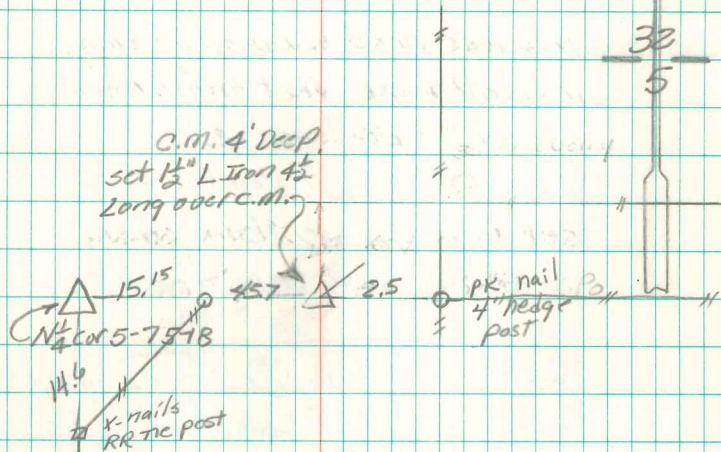 32
5
C.M. 4' Deep.
set 1½" L Iron 4½
Long over C.M.
15.15
45.7
2.5
PK nail
4" hedge
post
N¼ cor 5-7S4B
14.6
X-nails
RR tie post